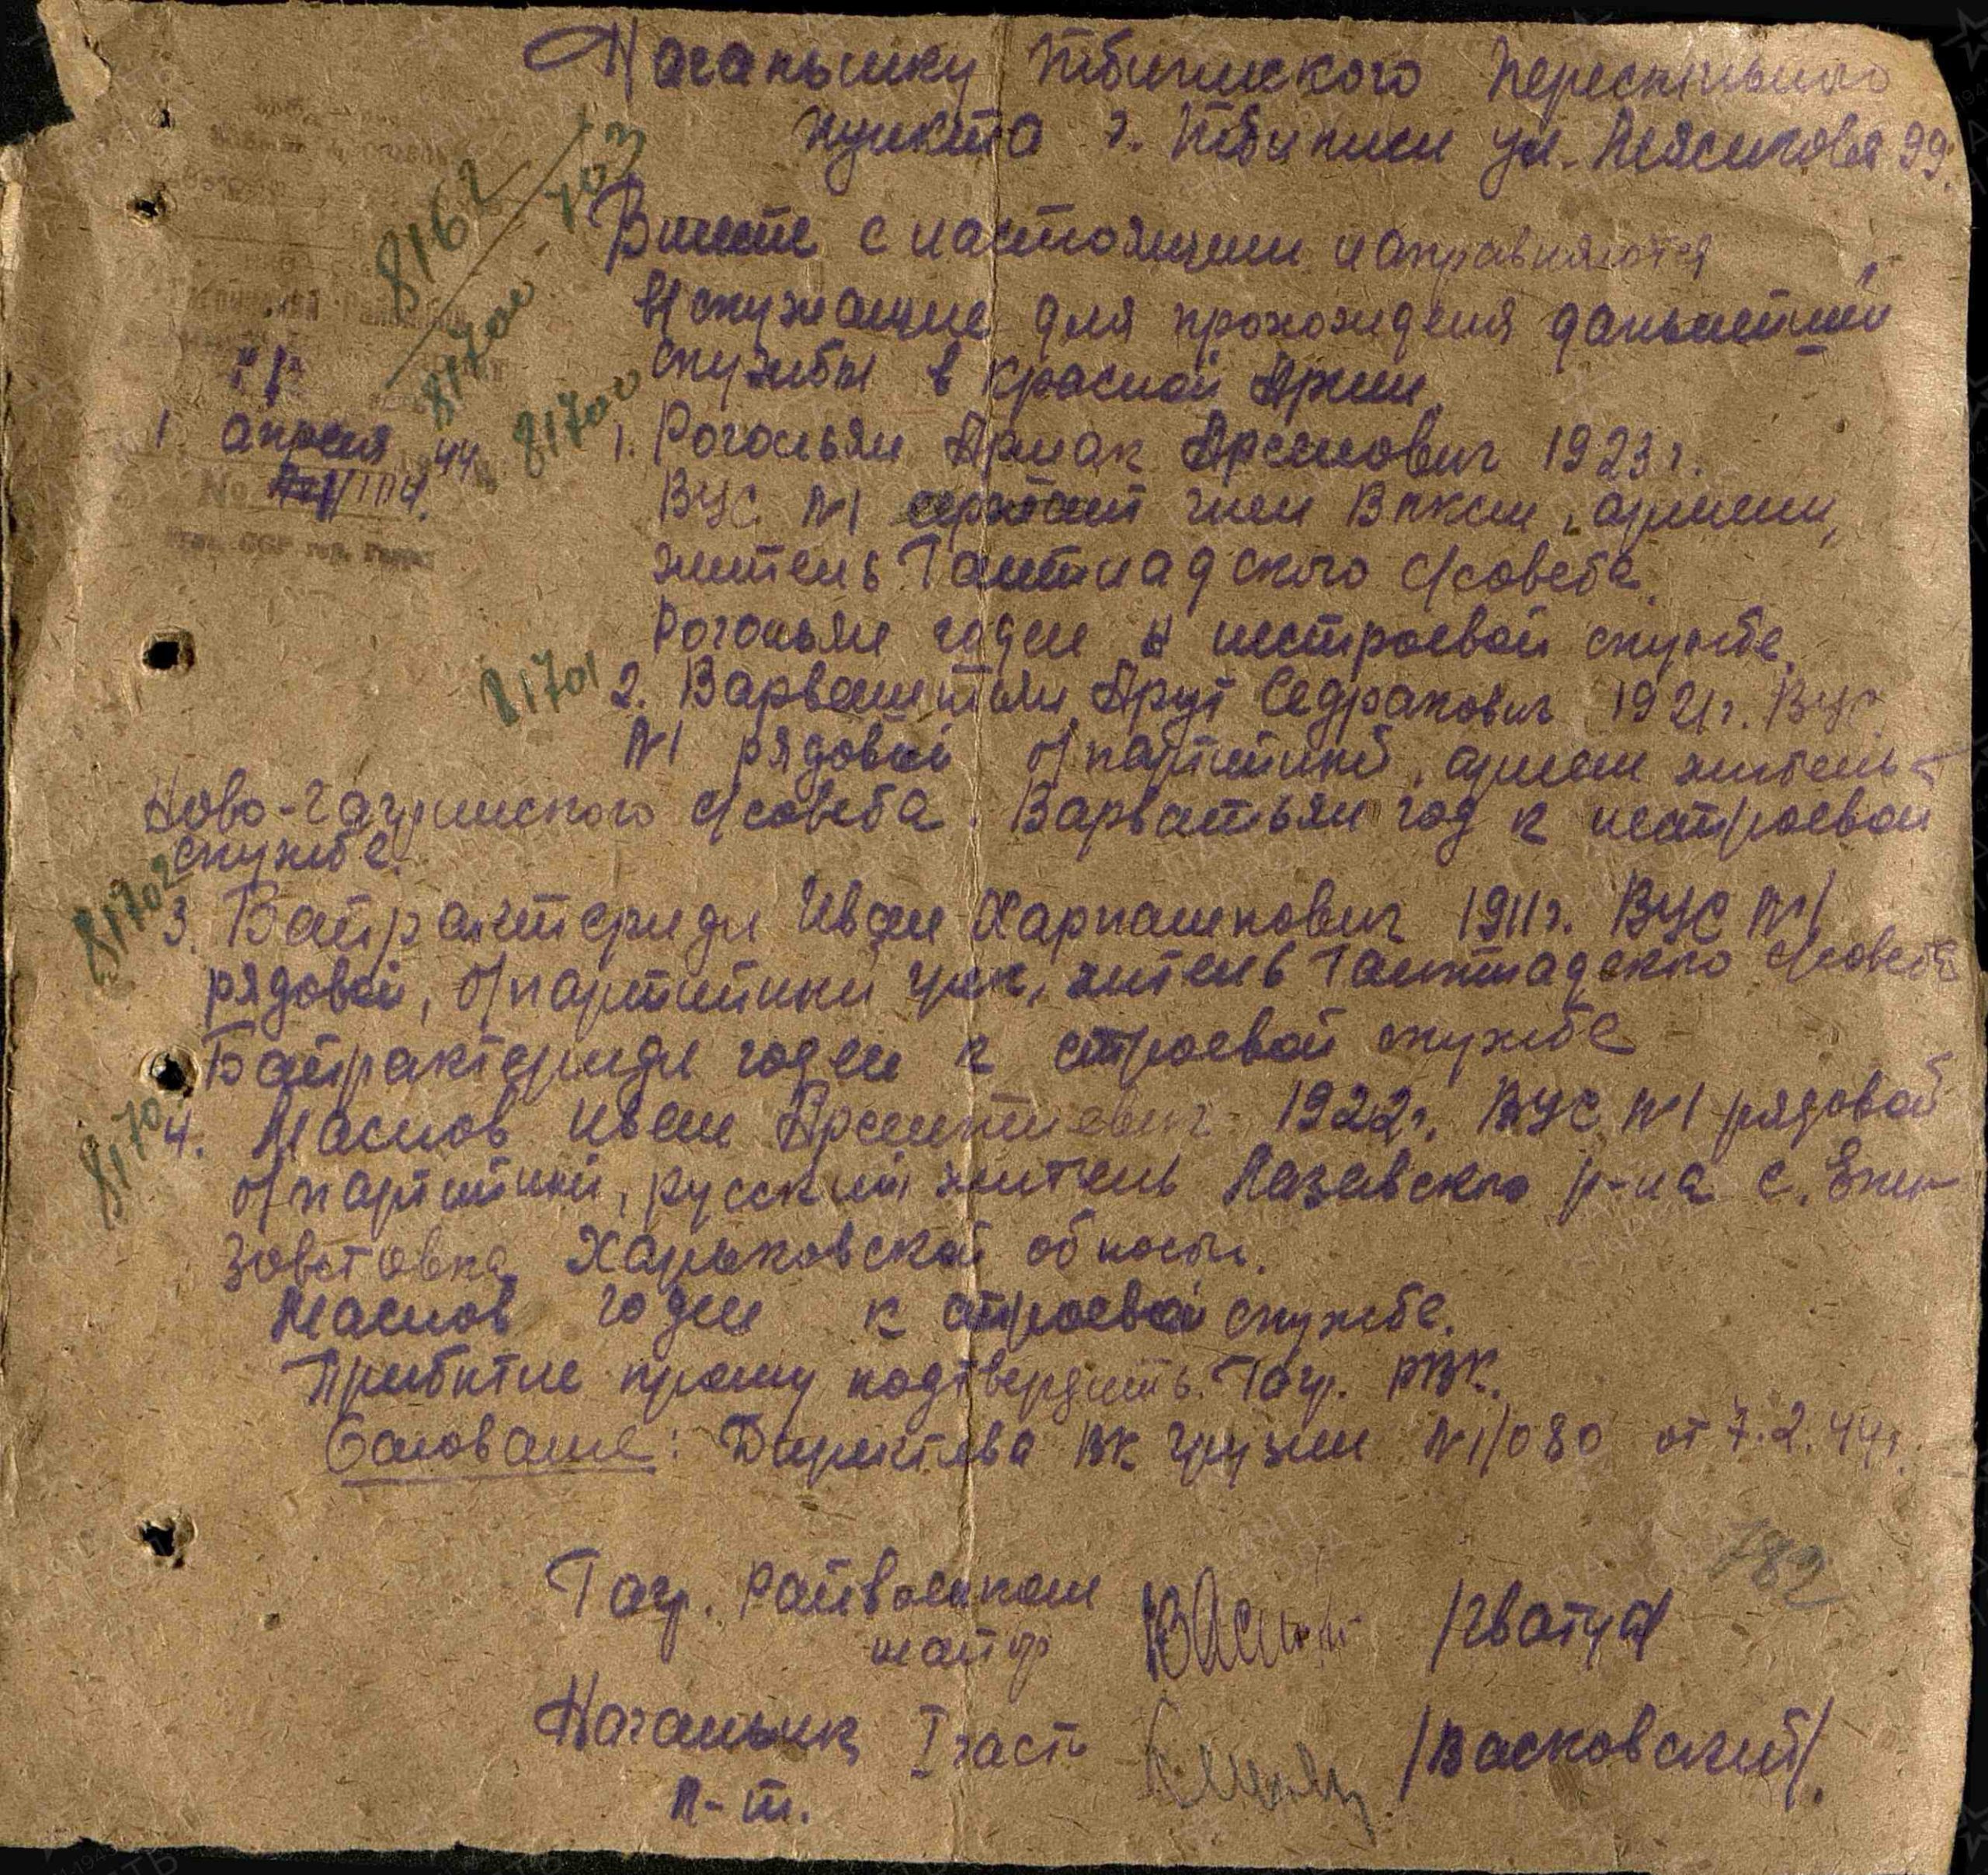 Начальнику Тбилиского пересыльного
пункта г. Тбилиси ул. Мясникова 99.
8162
703
Вместе с настоящим направляются
в/служащие для прохождения дальнейшей
службы в Красной Армии.
81700
1 апреля 44
81700
1. Рогоньян Армак Арсенович 1923 г.
ВУС №1 сержант член ВЛКСМ, армянин,
No 1/104.
житель Гантиадского с/совета.
ССР гор. Гагры
Рогоньян годен к нестроевой службе.
81701
2. Варватьян Арут Седракович 1921 г. ВУС
№1 рядовой б/партийный, армян житель
Ново-Гагринского с/совета. Варватьян год к нестроевой
службе.
81702
3. Байрактериди Иван Харлампович 1911 г. ВУС №1
рядовой, б/партийный грек, житель Гантиадского с/совета
Байрактериди годен к строевой службе
8170
4. Маслов Иван Арсентиевич 1922 г. ВУС №1 рядовой
б/партийный, русский житель Лазавского р-на с. Ели-
заветовка Харьковской област.
Маслов годен к строевой службе.
Прибытие прошу подтвердить Гагр. РВК.
Основание: Директива ВК Грузии №1/080 от 7.2.44 г.
782
Гагр. Райвоенком
майор /Гватуа/
Начальник I части /Васковский/.
л-т.